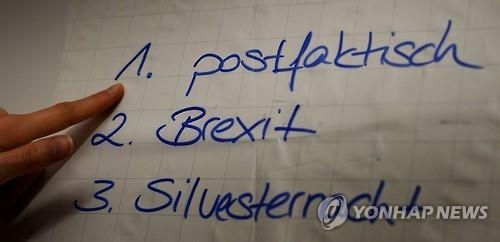 1. postfaktisch
2. Brexit
3. Silvesternacht
YONHAP NEWS